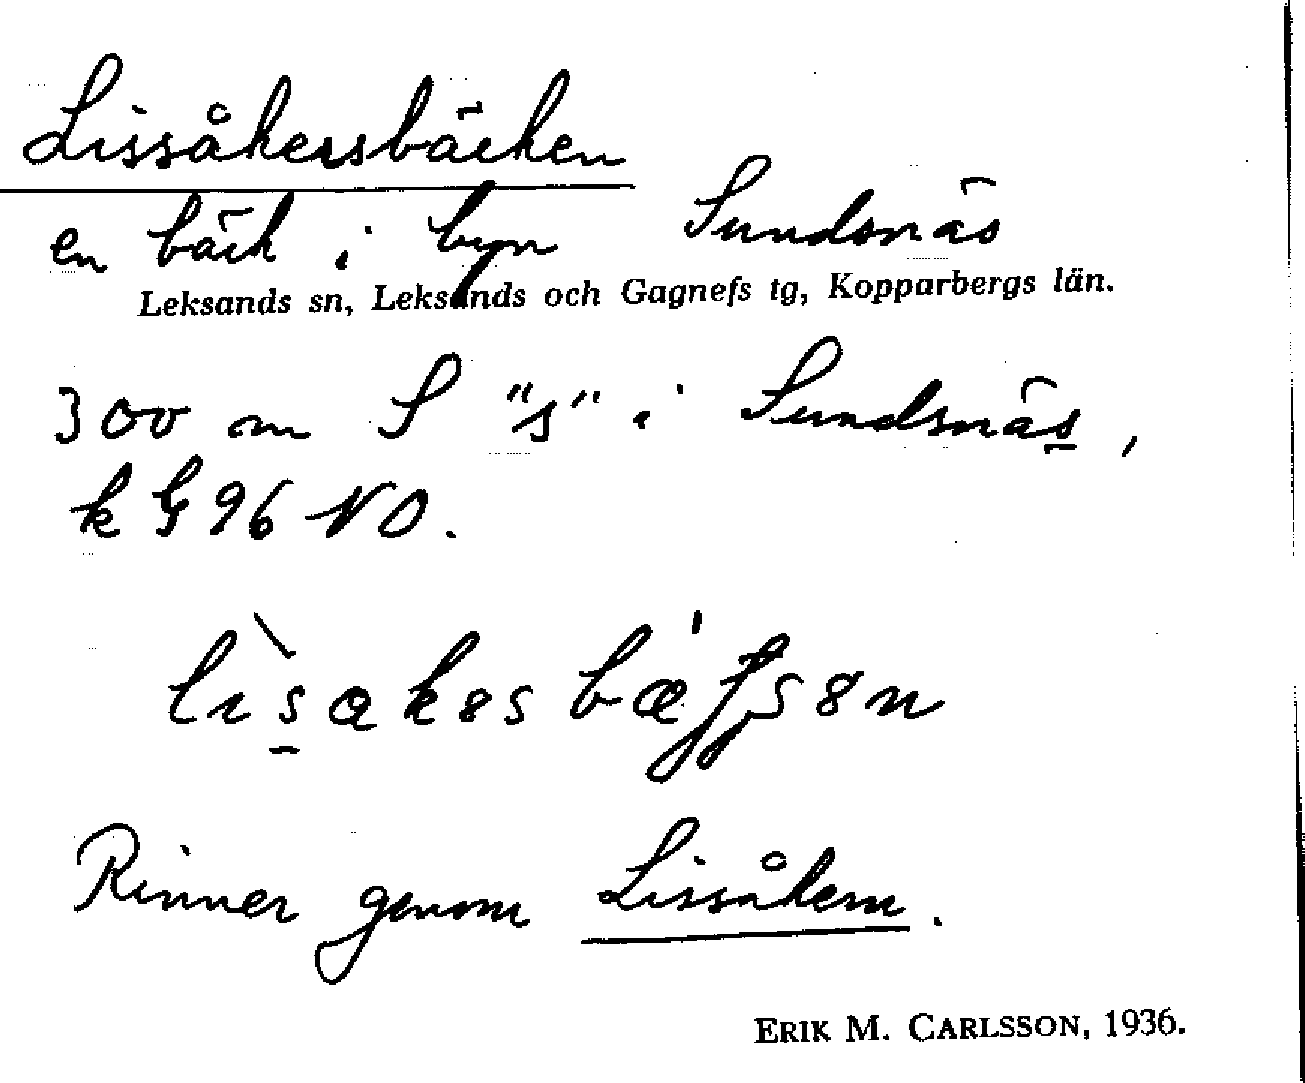 Lissåkersbäcken
en bäck i byn Sundsnäs
Leksands sn, Leksands och Gagnefs tg, Kopparbergs län.
300 m S "s" i Sundsnäs,
k G 96 NO.
Rinner genom Lissåkern.
ERIK M. CARLSSON, 1936.